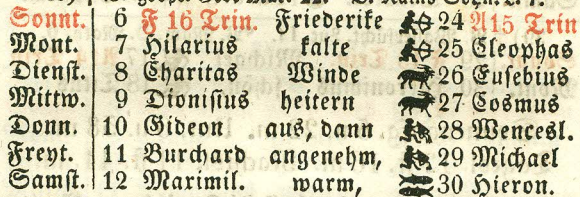 Sonnt. 6 F 16 Trin. Friederike 24 A15 Trin
Mont. 7 Hilarius kalte 25 Cleophas
Dienst. 8 Charitas Winde 26 Eusebius
Mittw. 9 Dionisius heitern 27 Cosmus
Donn. 10 Gideon aus, dann 28 Wencesl.
Freyt. 11 Burchard angenehm, 29 Michael
Samst. 12 Maximil. warm, 30 Hieron.